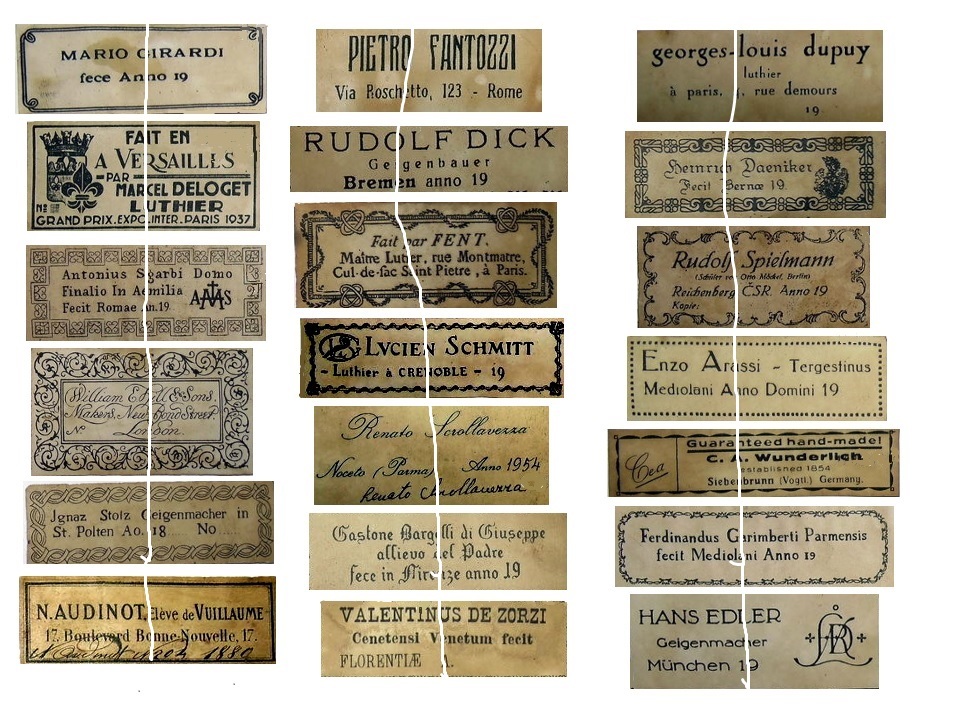 MARIO GIRARDI
fece Anno 19
FAIT EN
A VERSAILLES
PAR
MARCEL DELOGET
LUTHIER
GRAND PRIX.EXPO.INTER.PARIS 1937
Antonius Sgarbi Domo
Finalio In Aemilia
Fecit Romae An.19
William E. Hill & Sons.
Makers, New Bond Street
No London.
Jgnaz Stolz Geigenmacher in
St. Polten Ao. 18 No
N. AUDINOT, Elève de VUILLAUME
17, Boulevard Bonne-Nouvelle, 17.
N Audinot 1880
PIETRO FANTOZZI
Via Roschetto, 123 - Rome
RUDOLF DICK
Geigenbauer
Bremen anno 19
Fait par FENT.
Maître Luter, rue Montmatre,
Cul-de-sac Saint Pietre, à Paris.
LVCIEN SCHMITT
- Luthier à GRENOBLE - 19
Renato Scrollavezza
Noceto (Parma) Anno 1954
Renato Scrollavezza
Gastone Bargelli di Giuseppe
allievo del Padre
fece in Firenze anno 19
VALENTINUS DE ZORZI
Cenetensi Venetum fecit
FLORENTIÆ A.
georges-louis dupuy
luthier
à paris, 4, rue demours
19
Heinrich Daeniker
Fecit Bernæ 19.
Rudolf Spielmann
(Schüler von Otto Höckel, Berlin)
Reichenberg ČSR. Anno 19
Kopie:
Enzo Arassi - Tergestinus
Mediolani Anno Domini 19
Cea
Guaranteed hand-made!
C. A. Wunderlich.
established 1854
Siebenbrunn (Vogtl.) Germany.
Ferdinandus Garimberti Parmensis
fecit Mediolani Anno 19
HANS EDLER
Geigenmacher
München 19